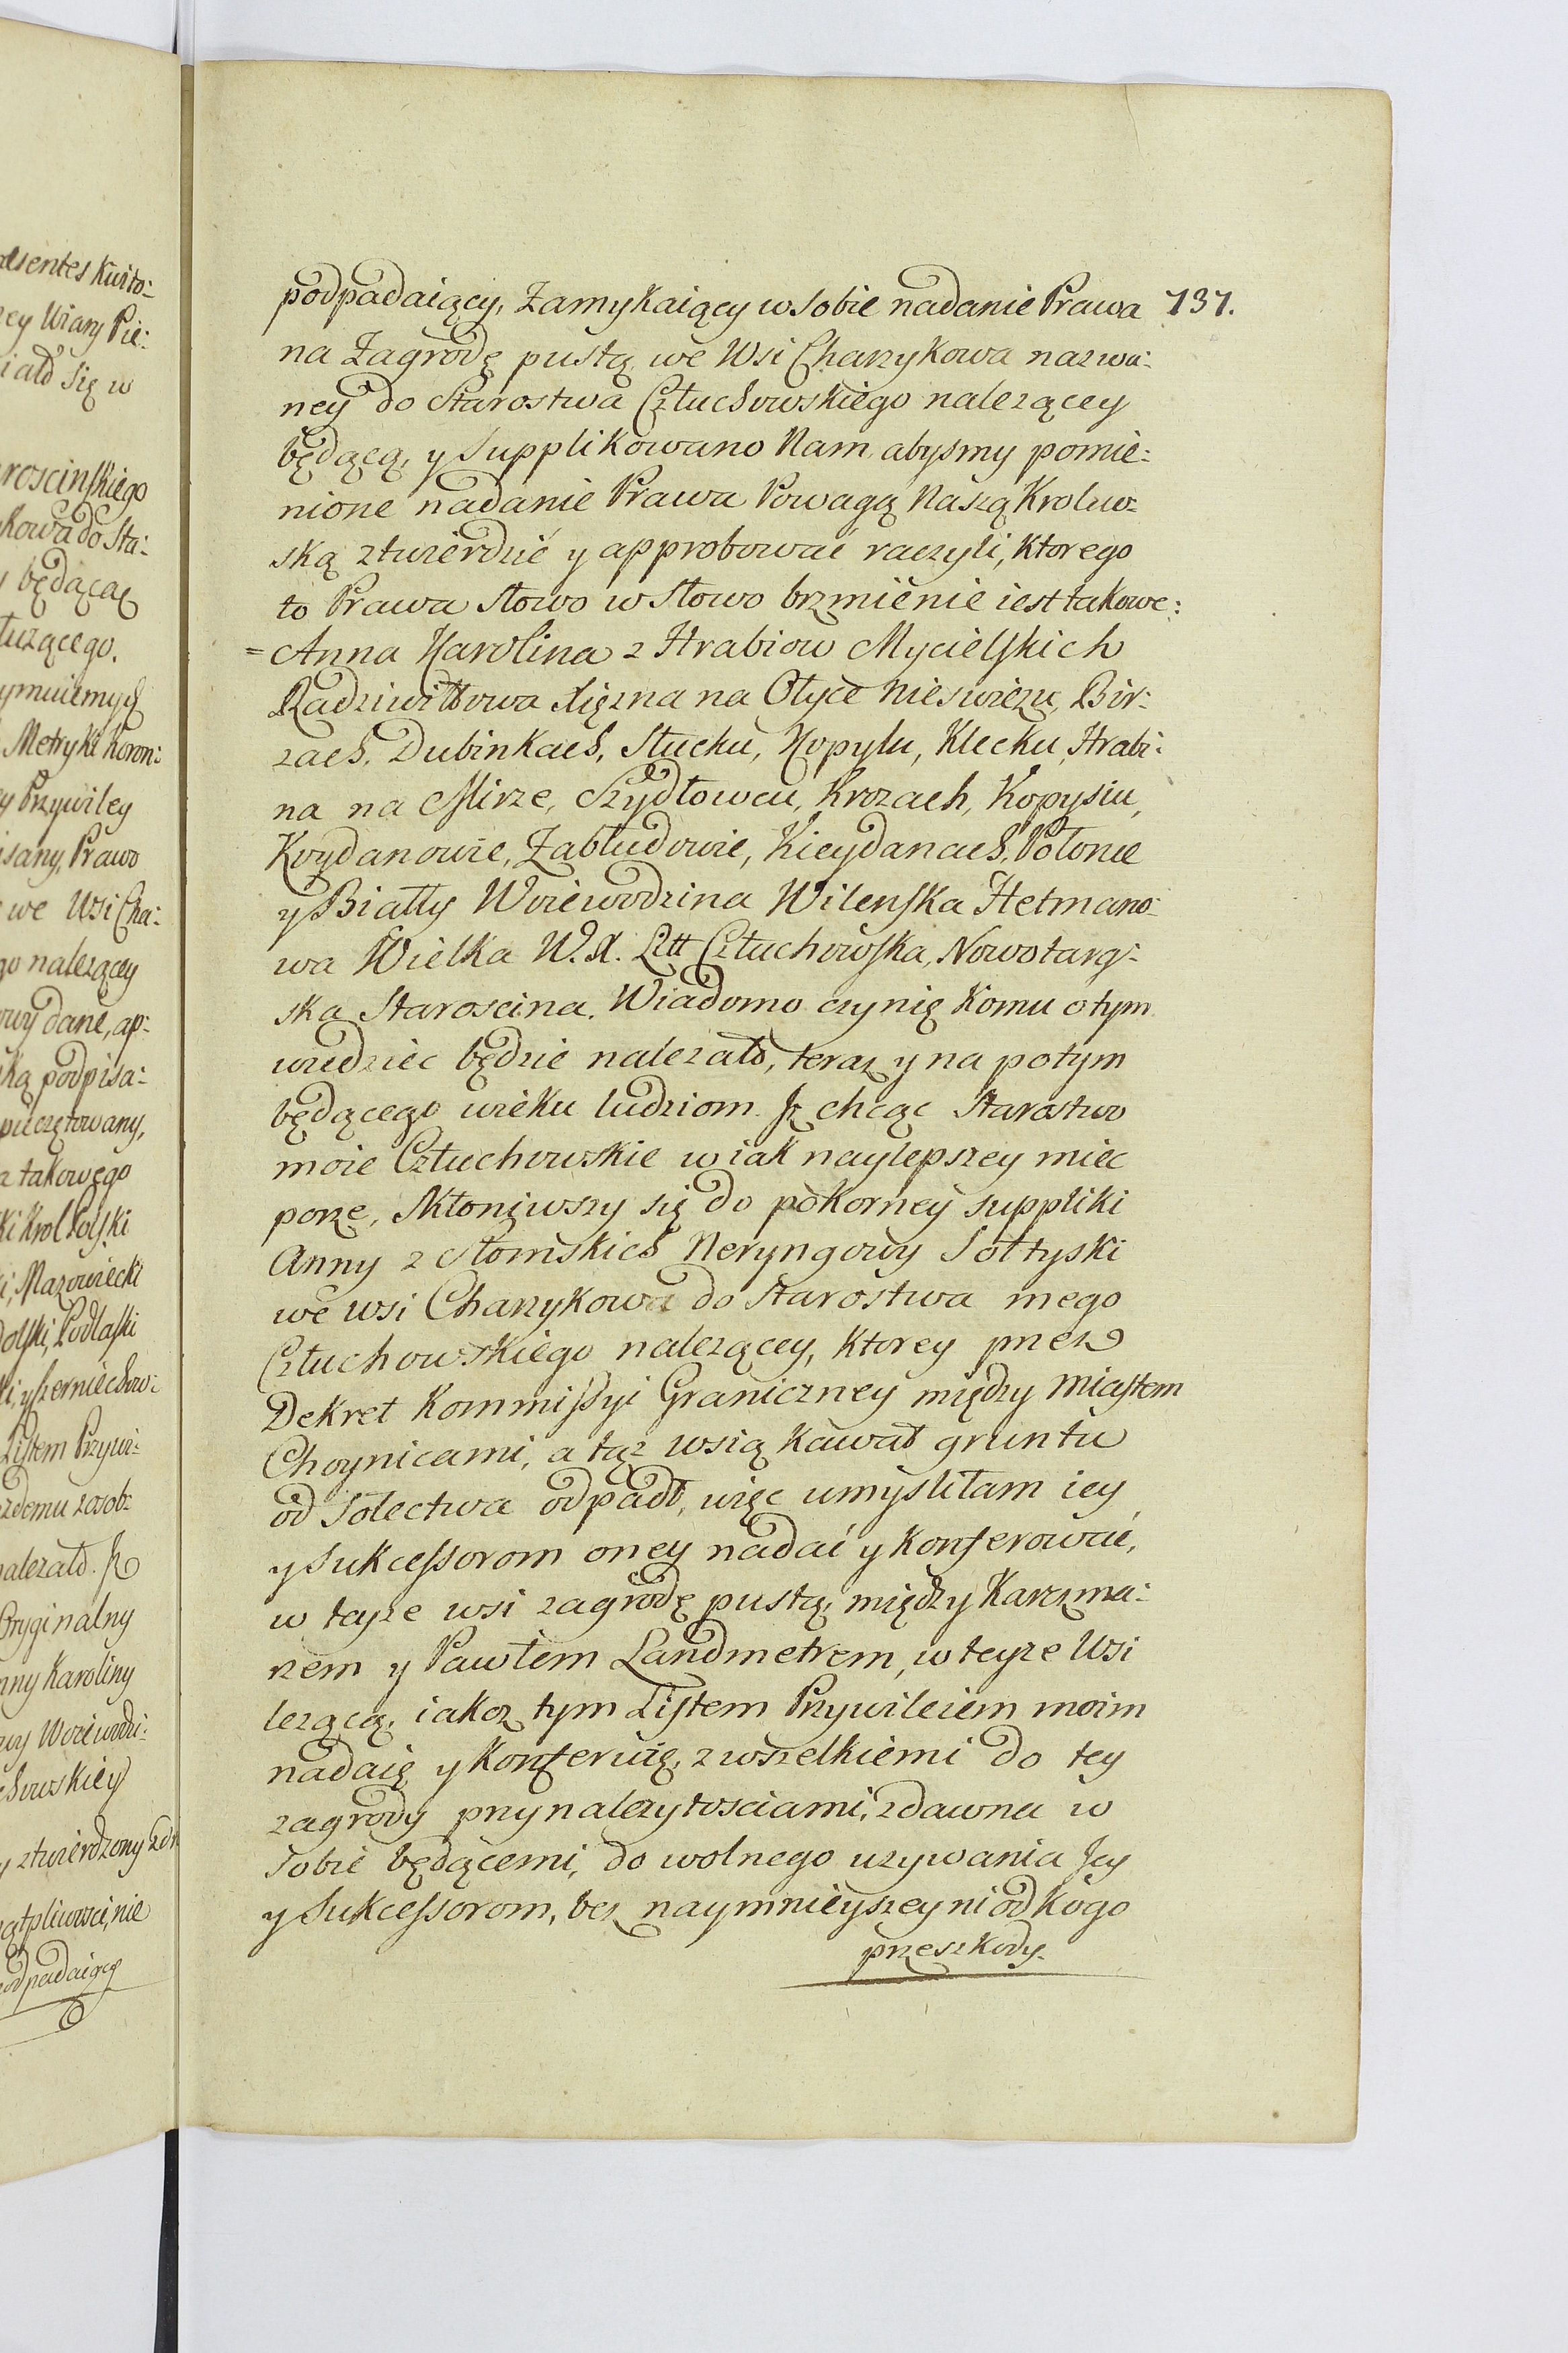 podpadaiący, Zamykaiący w sobie nadanie Prawa 131.
na Zagrodę pustą we Wsi Charzykowa nazwa:
ney do Starostwa Człuchowskiego nalezącey
będącą, y supplikowano Nam, abysmy pomie:
nione nadanie Prawa Powagą Naszą Krolew:
ską ztwierdzić y approbować raczyli, ktorego
to Prawa słowo w słowo brzmienie iest takowe:
=Anna Karolina z Hrabiow Mycielskich
Radziwiłłowa Xięzna na Ołyce Nieswiezu, Bir:
zach, Dubinkach, Słucku, Kopylu, Klecku, Hrabi:
na na Mirze, Szydłowcu, Krozach, Kopysiu,
Koydanowie, Zabłudowie, Kieydanach, Połonce
y Białły Woiewodzina Wilenska Hetmano:
wa Wielka W. X. Litt Człuchowska, Nowotarg:
ska Staroscina. Wiadomo czynię komu o tym
wiedziec będzie nalezało, teraz y na potym
będącego wieku ludziom. Iz chcąc Starostwo
moie Człuchowskie w iak naylepszey miec
porze, skłoniwszy się do pokorney suppliki
Anny z Słomskich Neryngowy Sołtyski
we wsi Charzykowa do Starostwa mego
Człuchowskiego nalezącey, ktorey przez
Dekret Kommissyi Graniczney między Miastem
Choynicami, a tąz wsią kawał gruntu
od Solectwa odpadł, więc umysliłam iey
y Sukcessorom oney nadać y konferować,
w teyze wsi zagrodę pustą, między Karczma:
rzem y Pawłem Landmetrem, w teyze Wsi
lezącą, iakoz tym Listem Przywileiem moim
nadaię y konferuię, z wszelkiemi do tey
zagrody przynalezytosciami, zdawna w
sobie będącemi, do wolnego uzywania Jey
y Sukcessorom, bez naymnieyszey ni od kogo
przeszkody.